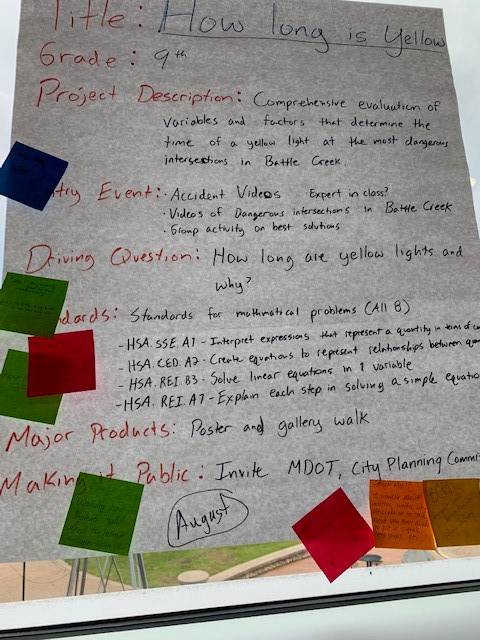 Title: How long is Yellow
Grade: 9th
Project Description: Comprehensive evaluation of
variables and factors that determine the
time of a yellow light at the most dangerous
intersections in Battle Creek.
try Event: · Accident Videos · Expert in class?
· Videos of Dangerous intersections in Battle Creek
· Group activity on best solutions
Driving Question: How long are yellow lights and
why?
dards: Standards for mathmatical problems (All 8)
- HSA.SSE.A1 - Interpret expressions that represent a quantity in terms of
- HSA.CED.A2 - Create equations to represent relationships between
- HSA.REI.B3 - Solve linear equations in 1 variable
- HSA.REI.A1 - Explain each step in solving a simple equatio
Major Products: Poster and gallery walk
Making it Public: Invite MDOT, City Planning Commit
August